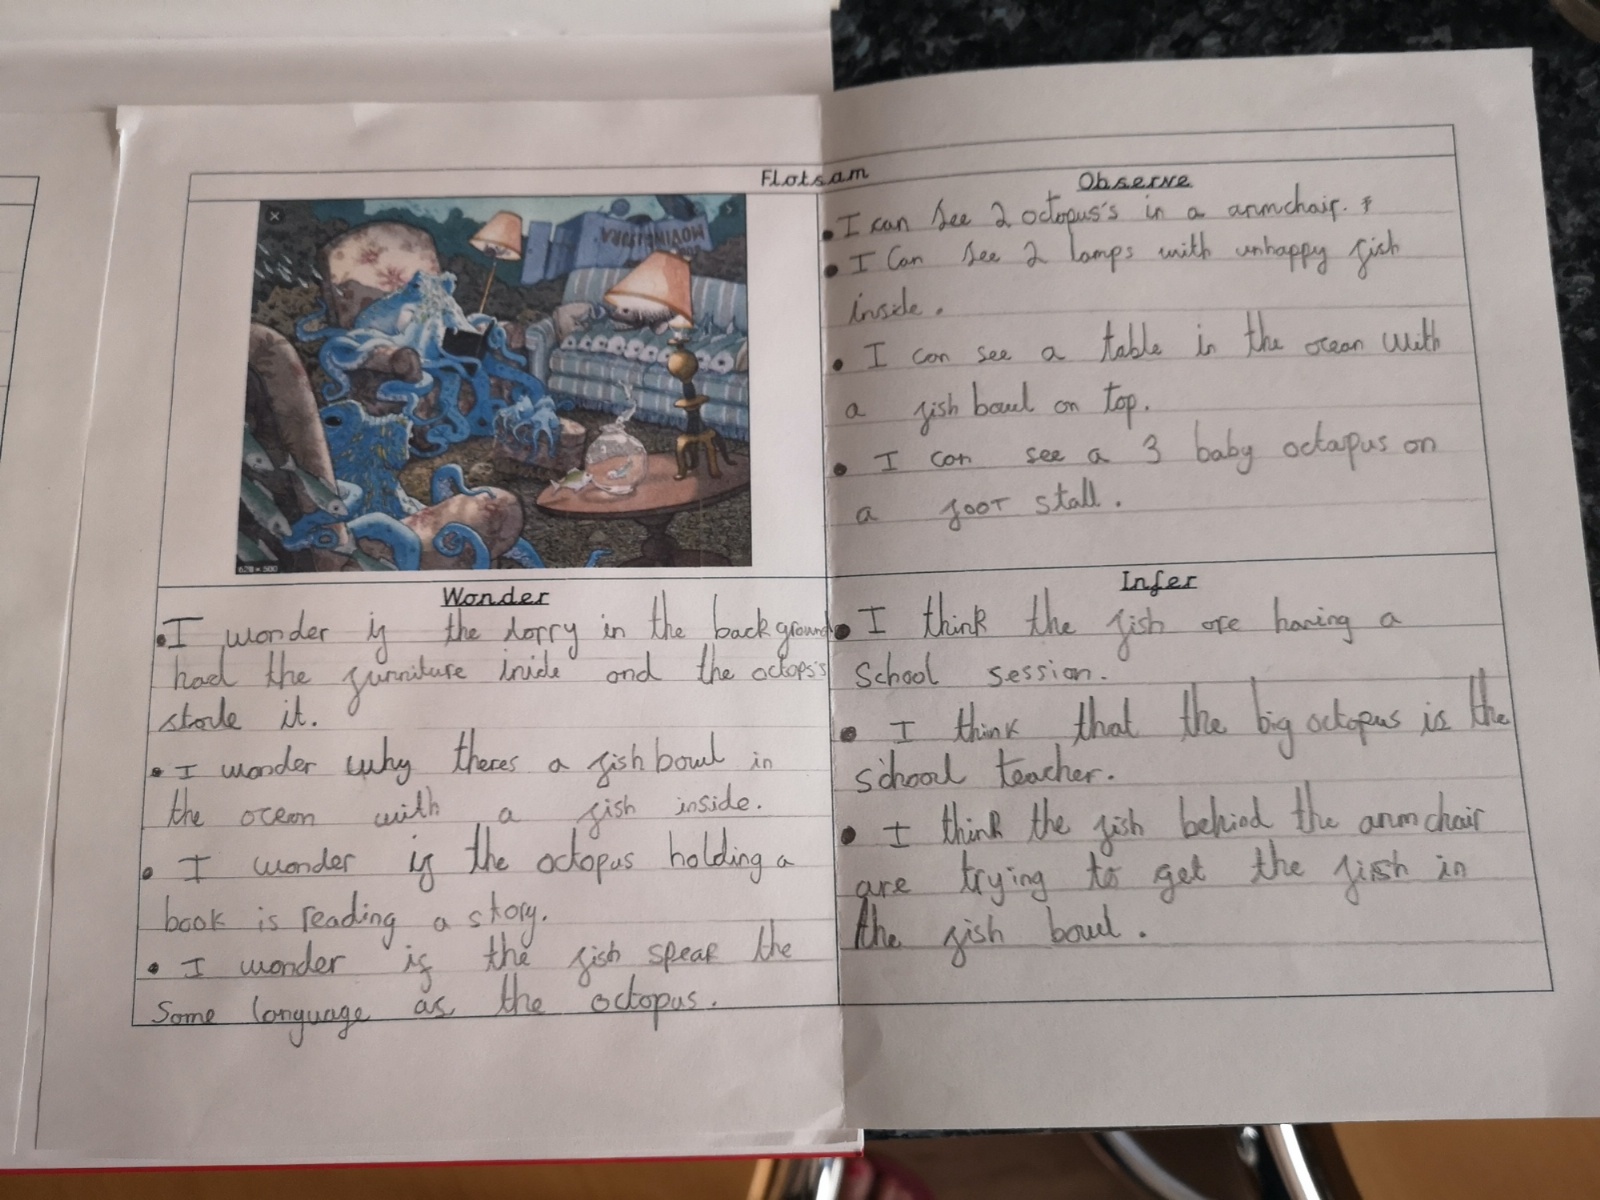 Flotsam
MOVING & STORA
620 × 500
Observe
• I can see 2 octopus's in a armchair.
• I Can see 2 lamps with unhappy fish
inside.
• I can see a table in the ocean with
a fish bowl on top.
• I can see a 3 baby octapus on
a foot stall.
Wonder
• I wonder if the lorry in the background
had the furniture inide and the octops's
stole it.
• I wonder why theres a fish bowl in
the ocean with a fish inside.
• I wonder if the octopus holding a
book is reading a story.
• I wonder if the fish speak the
same language as the octopus.
Infer
• I think the fish are having a
school session.
• I think that the big octopus is the
school teacher.
• I think the fish behind the armchair
are trying to get the fish in
the fish bowl.